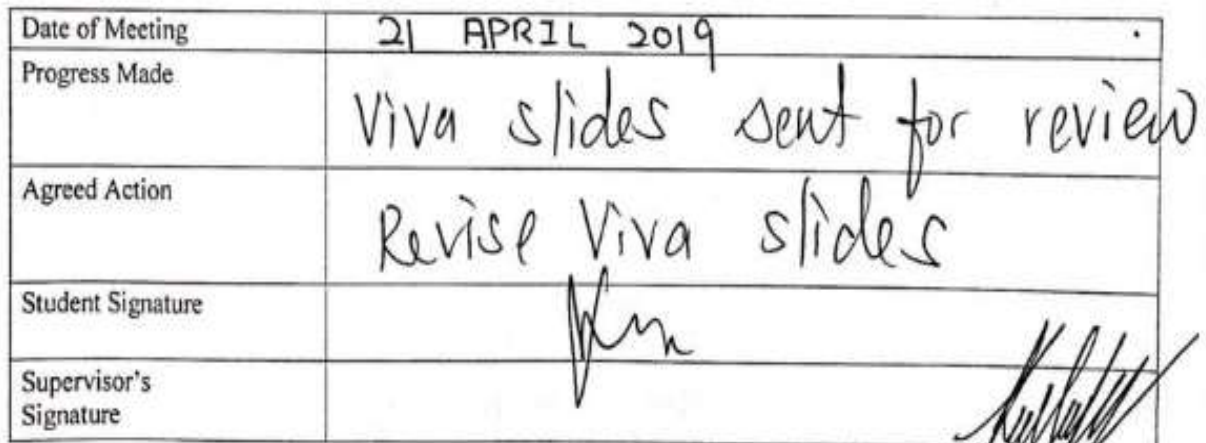 Date of Meeting 21 APRIL 2019
Progress Made
Viva slides sent for review
Agreed Action
Revise Viva slides
Student Signature
Supervisor's
Signature